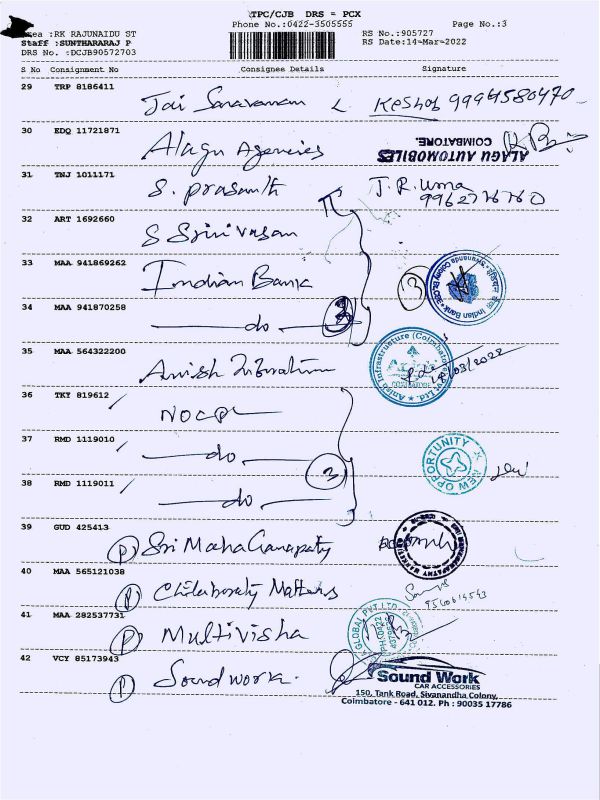 TPC/CJB DRS = PCX
Phone No.:0422-3505555 Page No.:3
:RK RAJUNAIDU ST RS No.:905727
Staff :SUNTHARARAJ P RS Date:14-Mar-2022
DRS No. :DCJB90572703
S No Consignment No Consignee Details Signature
29 TRP 8186411
Jai Saravanam
30 EDQ 11721871
Alagu Agencies
ALAGU AUTOMOBILES
COIMBATORE.
31 TNJ 1011171
S. Prasanth J.R. Uma
9962776760
32 ART 1692660
S Srinivasan
33 MAA 941869262
Indian Bank 3
34 MAA 941870258
do
35 MAA 564322200
36 TKY 819612
37 RMD 1119010
do 3
NEW OPPORTUNITY
38 RMD 1119011
do
39 GUD 425413
P Sri Maha Ganapaty
40 MAA 565121038
P
41 MAA 282537731
P Multivisha
GLOBAL PVT.LTD
42 VCY 85173943
P Sound work.
Sound Work
CAR ACCESSORIES
150, Tank Road, Sivanandha Colony,
Coimbatore - 641 012. Ph : 90035 17786